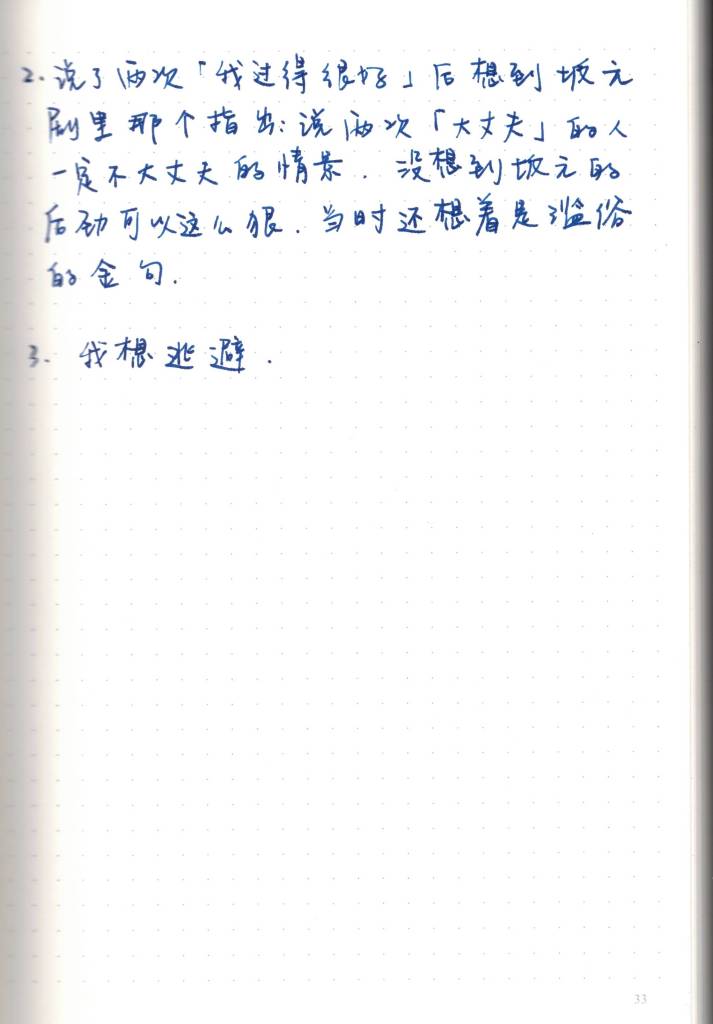 2. 说了两次「我过得很好」后想到坂元
剧里那个指出:说两次「大丈夫」的人
一定不大丈夫的情景. 没想到坂元的
后劲可以这么狠. 当时还想着是滥俗
的金句.
3. 我想逃避.
33